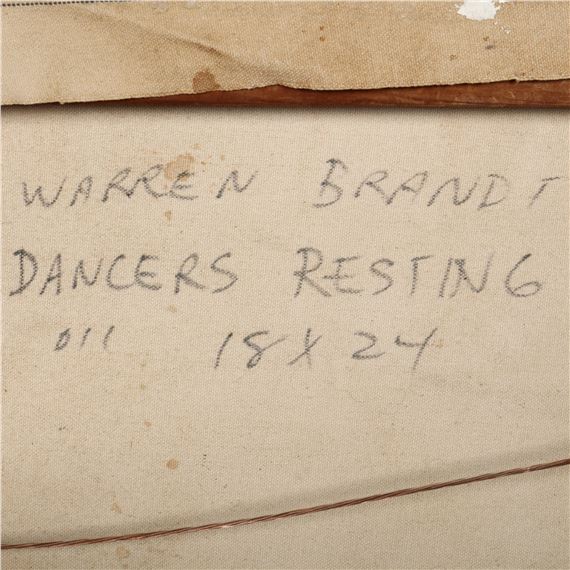 WARREN BRANDT
DANCERS RESTING
oil 18 X 24